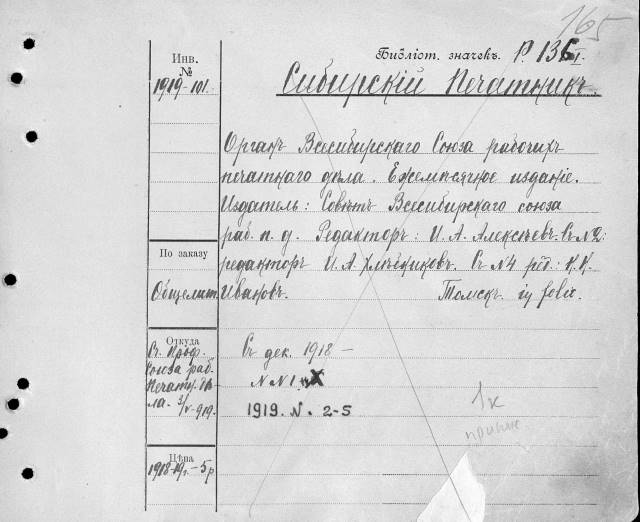 165
Библіот. значекъ. Р. 136 I.
Инв. №
1919-101.
Сибирскій Печатникъ.
Органъ Всесибирскаго Союза рабочихъ
печатнаго дѣла. Ежемѣсячное изданіе.
Издатель: Совѣтъ Всесибирскаго союза
раб. п. д. Редакторъ: И. А. Алексѣевъ. Съ № 2:
редакторъ И. А. Хлѣбниковъ. Съ № 4 ред: К. К.
Ивановъ. Томскъ. in folio.
По заказу
Общелит.
Откуда
Съ Проф.
Союза раб.
Печатн. дѣ-
ла. 3/V-919.
Съ дек. 1918 –
N N 1
1919. N. 2-5
1к
Цѣна
1918-19 г. – 5 р